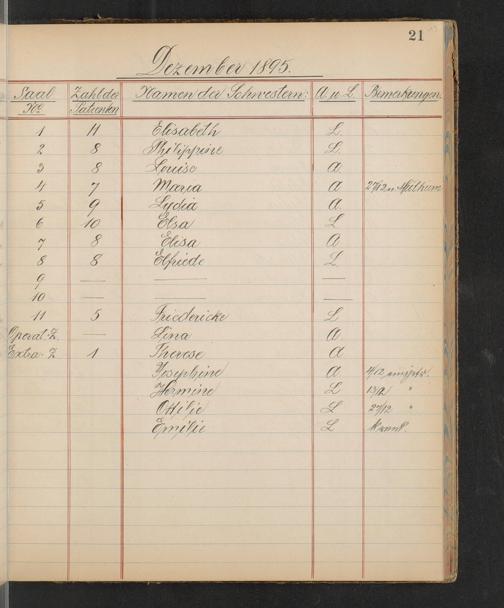 21
Dezember 1895.
Saal No. Zahl der Patienten Namen der Schwestern: A. u. L. Bemerkungen.
1 11 Elisabeth L.
2 8 Philippine L.
3 8 Louise A.
4 7 Maria A 27/12 n.
5 9 Lydia A
6 10 Elsa L
7 8 Elisa A
8 8 Elfriede L
9 — — —
10 — — —
11 5 Friedericke L
Operat. Z. — Lina A
Extra-Z. 1 Therese A
Josephine A
Hermine L 13/12 "
Ottilie L 27/12 "
Emilie L krank.